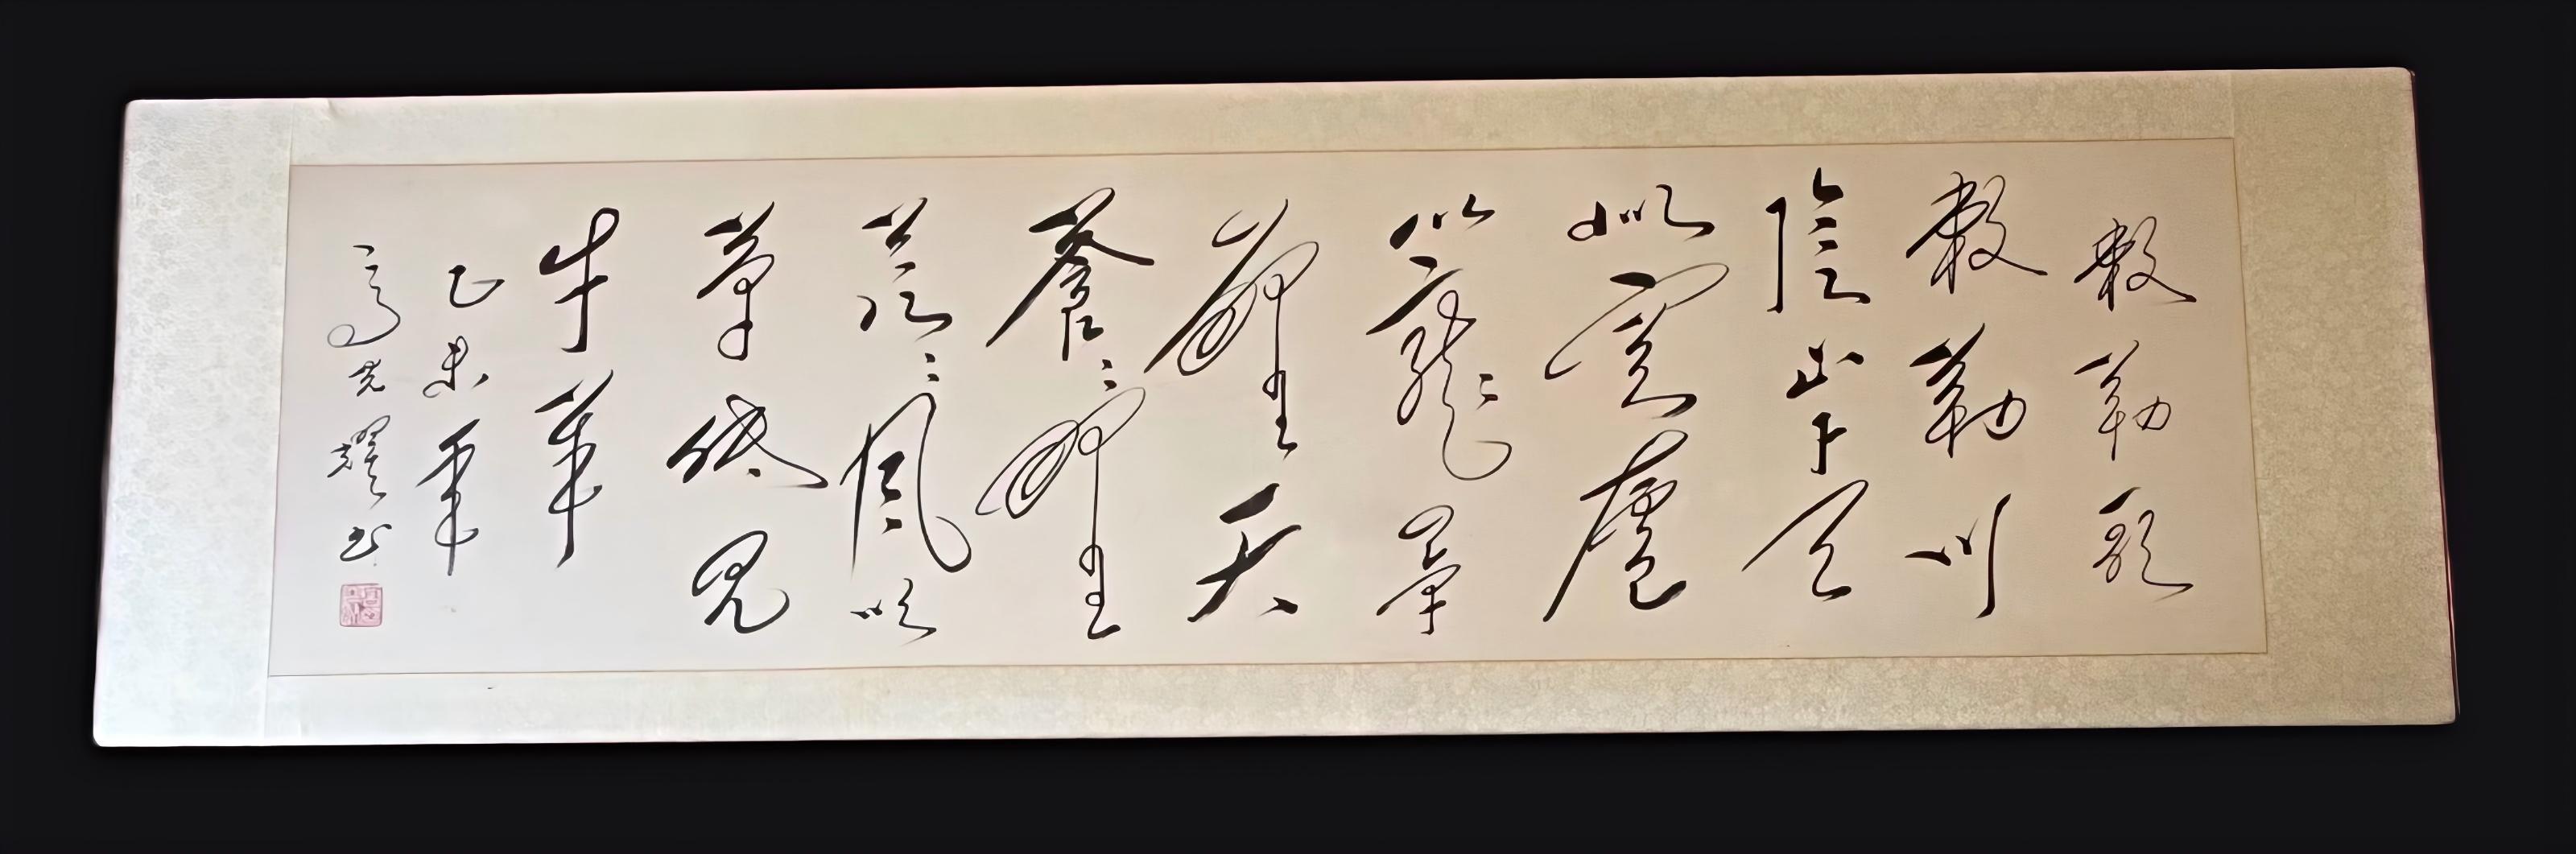 敕勒歌
敕勒川
陰山下天
似穹廬
籠罩
四野天
蒼〻野
茫〻風吹
草低見
牛羊
乙未年
高光耀書